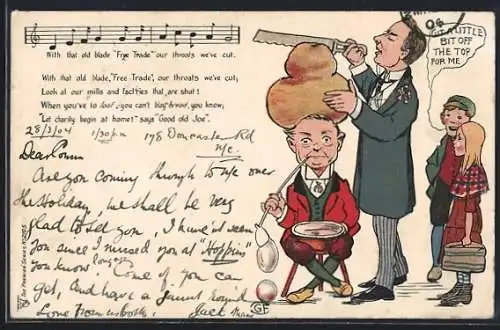 With that old blade "Frye Trade" our throats we've cut.
With that old blade, "Free Trade", our throats we've cut;
Look at our mills and factries that are shut!
When you've to loaf, you can't buy bread, you know;
"Let charity begin at home!" says "Good old Joe".
06
CUT A LITTLE
BIT OFF
THE TOP
FOR ME
28/3/04 1/30 pm 178 Doncaster Rd
N/c.
Dear
Are you coming through to N/c over
the Holiday, we shall be very
glad to see you, I have'nt seen
you since I missed you at "Hoppins"
you know Come if you can
get, and have a jaunt round
Love from us both. Jack